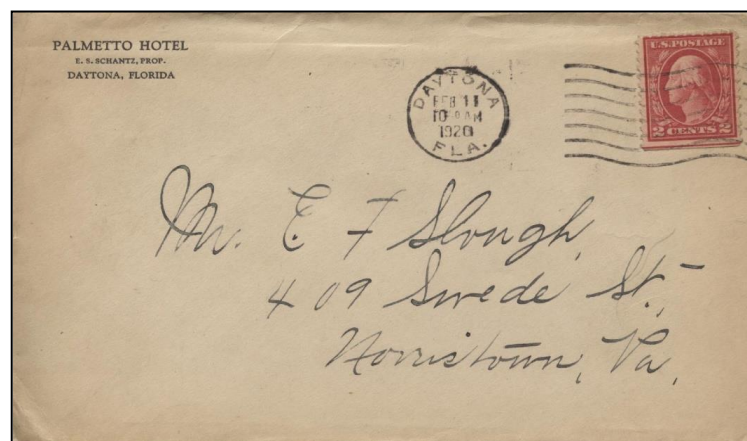 PALMETTO HOTEL
E. S. SCHANTZ, PROP.
DAYTONA, FLORIDA
DAYTONA
FEB 11
10 AM
1920
FLA.
U.S. POSTAGE
2 CENTS 2
Mr. E F Slough,
409 Swede St.,
Norristown, Pa,